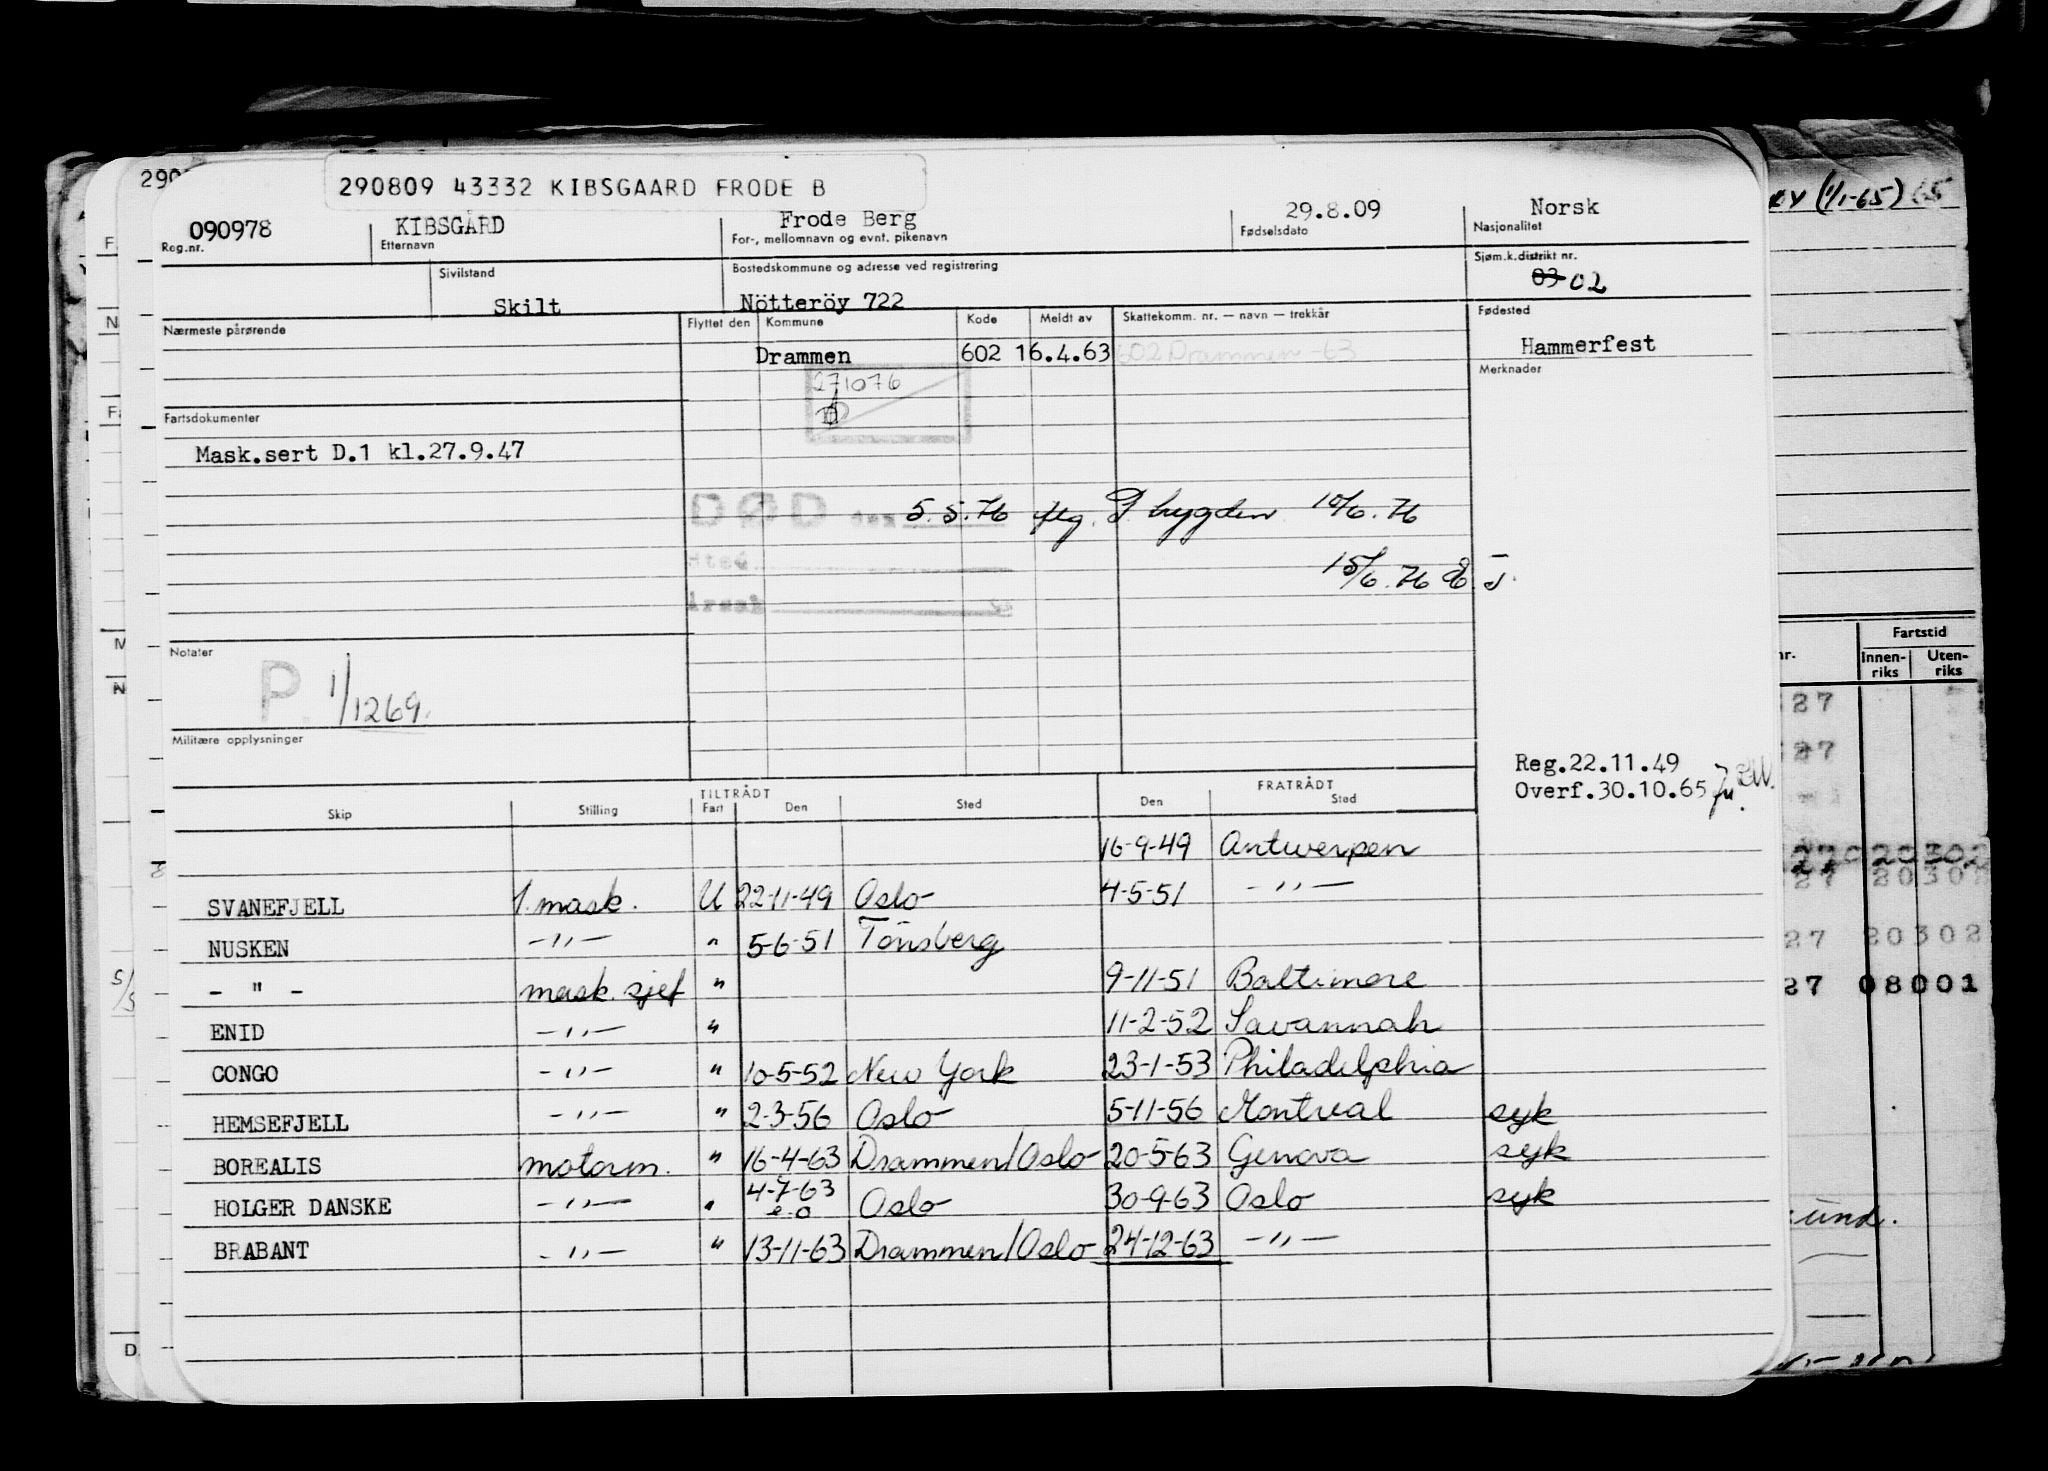 290809 43332 KIBSGAARD FRODE B
090978 KIBSGÅRD Frode Berg 29.8.09 Norsk
Reg.nr. Etternavn For-, mellomnavn og evnt. pikenavn Fødselsdato Nasjonalitet
Sivilstand Bostedskommune og adresse ved registrering Sjøm.k.distrikt nr.
Skilt Nötteröy 722 03 02
Nærmeste pårørende Flyttet den Kommune Kode Meldt av Skattekomm. nr. — navn — trekkår Fødested
Drammen 602 16.4.63 602 Drammen -63 Hammerfest
Merknader
271076
Fartsdokumenter
Mask.sert D.1 kl.27.9.47
DØD den 5.5.76 flg. T. trygden 10/6.76
Sted
15/6.76
Årsak
Notater
P. 1/1269.
Militære opplysninger
Reg.22.11.49
Overf.30.10.65
TILTRÅDT FRATRÅDT
Skip Stilling Fart Den Sted Den Sted
16-9-49 Antwerpen
SVANEFJELL 1. mask. U 22-11-49 Oslo 4-5-51 -"-
NUSKEN -"- " 5-6-51 Tönsberg
- " - mask. sjef " 9-11-51 Baltimore
ENID -"- " 11-2-52 Savannah
CONGO -"- " 10-5-52 New York 23-1-53 Philadelphia
HEMSEFJELL -"- " 2-3-56 Oslo 5-11-56 Montreal syk
BOREALIS motorm. " 16-4-63 Drammen/Oslo 20-5-63 Genova syk
HOLGER DANSKE -"- " 4-7-63 e.o Oslo 30-9-63 Oslo syk
BRABANT -"- " 13-11-63 Drammen/Oslo 24-12-63 -"-
(1/1-65) 65
Fartstid
nr. Innen-riks Uten-riks
27
27
27 020302
27 20302
27 20302
27 08001
sund.